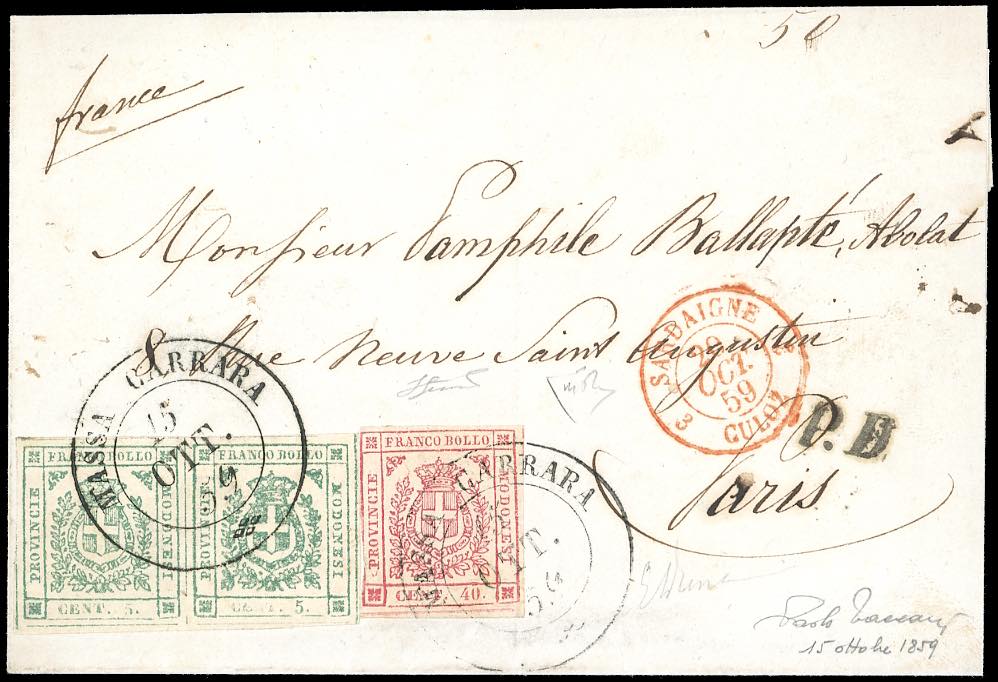 50
france
Monsieur Pamphile Ballapté, Avocat
8 Rue Neuve Saint Augustin
Paris
SARDAIGNE
OCT.
59
3 CULOZ 3
P.D
MASSA CARRARA
15
OTT.
59
MASSA CARRARA
OTT.
FRANCO BOLLO
PROVINCIE
MODONESI
CENT. 5.
FRANCO BOLLO
PROVINCIE
MODONESI
CENT. 5.
FRANCO BOLLO
PROVINCIE
MODONESI
CENT. 40.
15 ottobre 1859